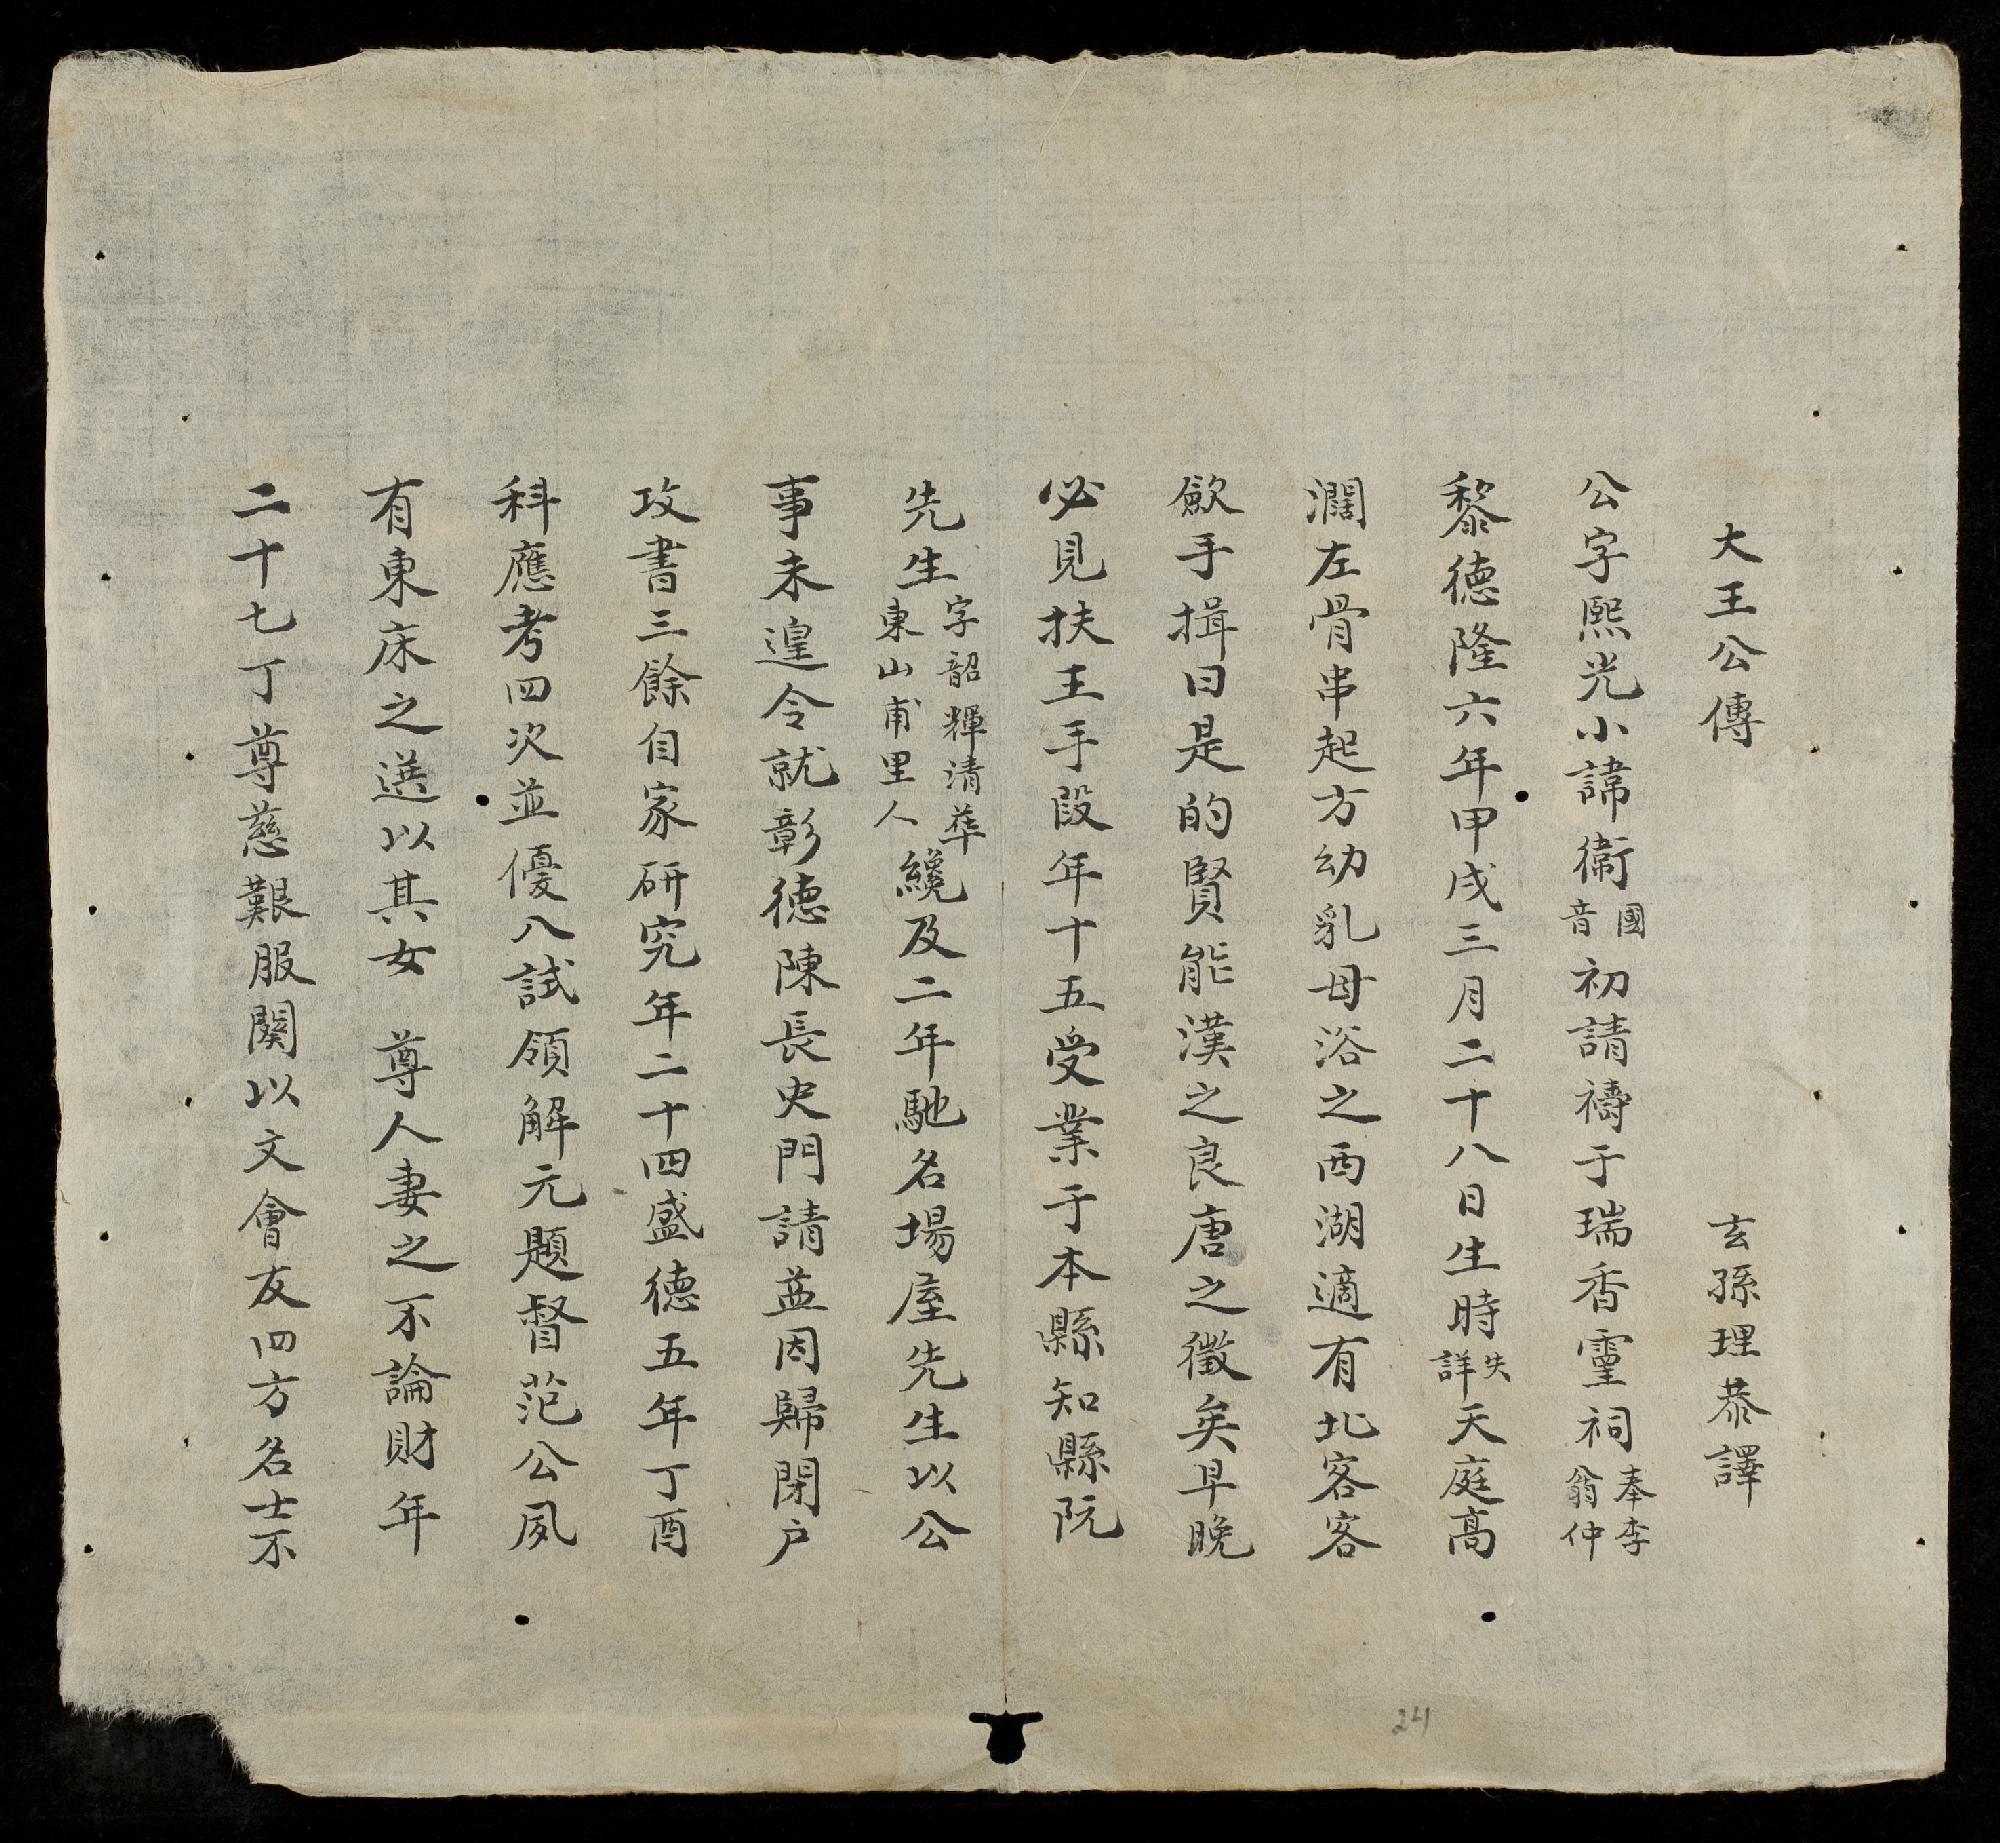 大王公傳 玄孫理恭譯
公字熙光小諱衞國音初請禱于瑞香靈祠奉李翁仲
黎德隆六年甲戌三月二十八日生時失詳天庭高
濶左骨串起方幼乳母浴之西湖適有北客客
歛手揖曰是的賢能漢之良唐之徵矣早晚
必見扶王手段年十五受業于本縣知縣阮
先生字韶輝清華東山甫里人纔及二年馳名場屋先生以公
事未遑令就彰德陳長史門請益因歸閉户
攻書三餘自家研究年二十四盛德五年丁酉
科應考四次並優八試領解元題督范公夙
有東床之選以其女 尊人妻之不論財年
二十七丁尊慈艱服闋以文會友四方名士不
24